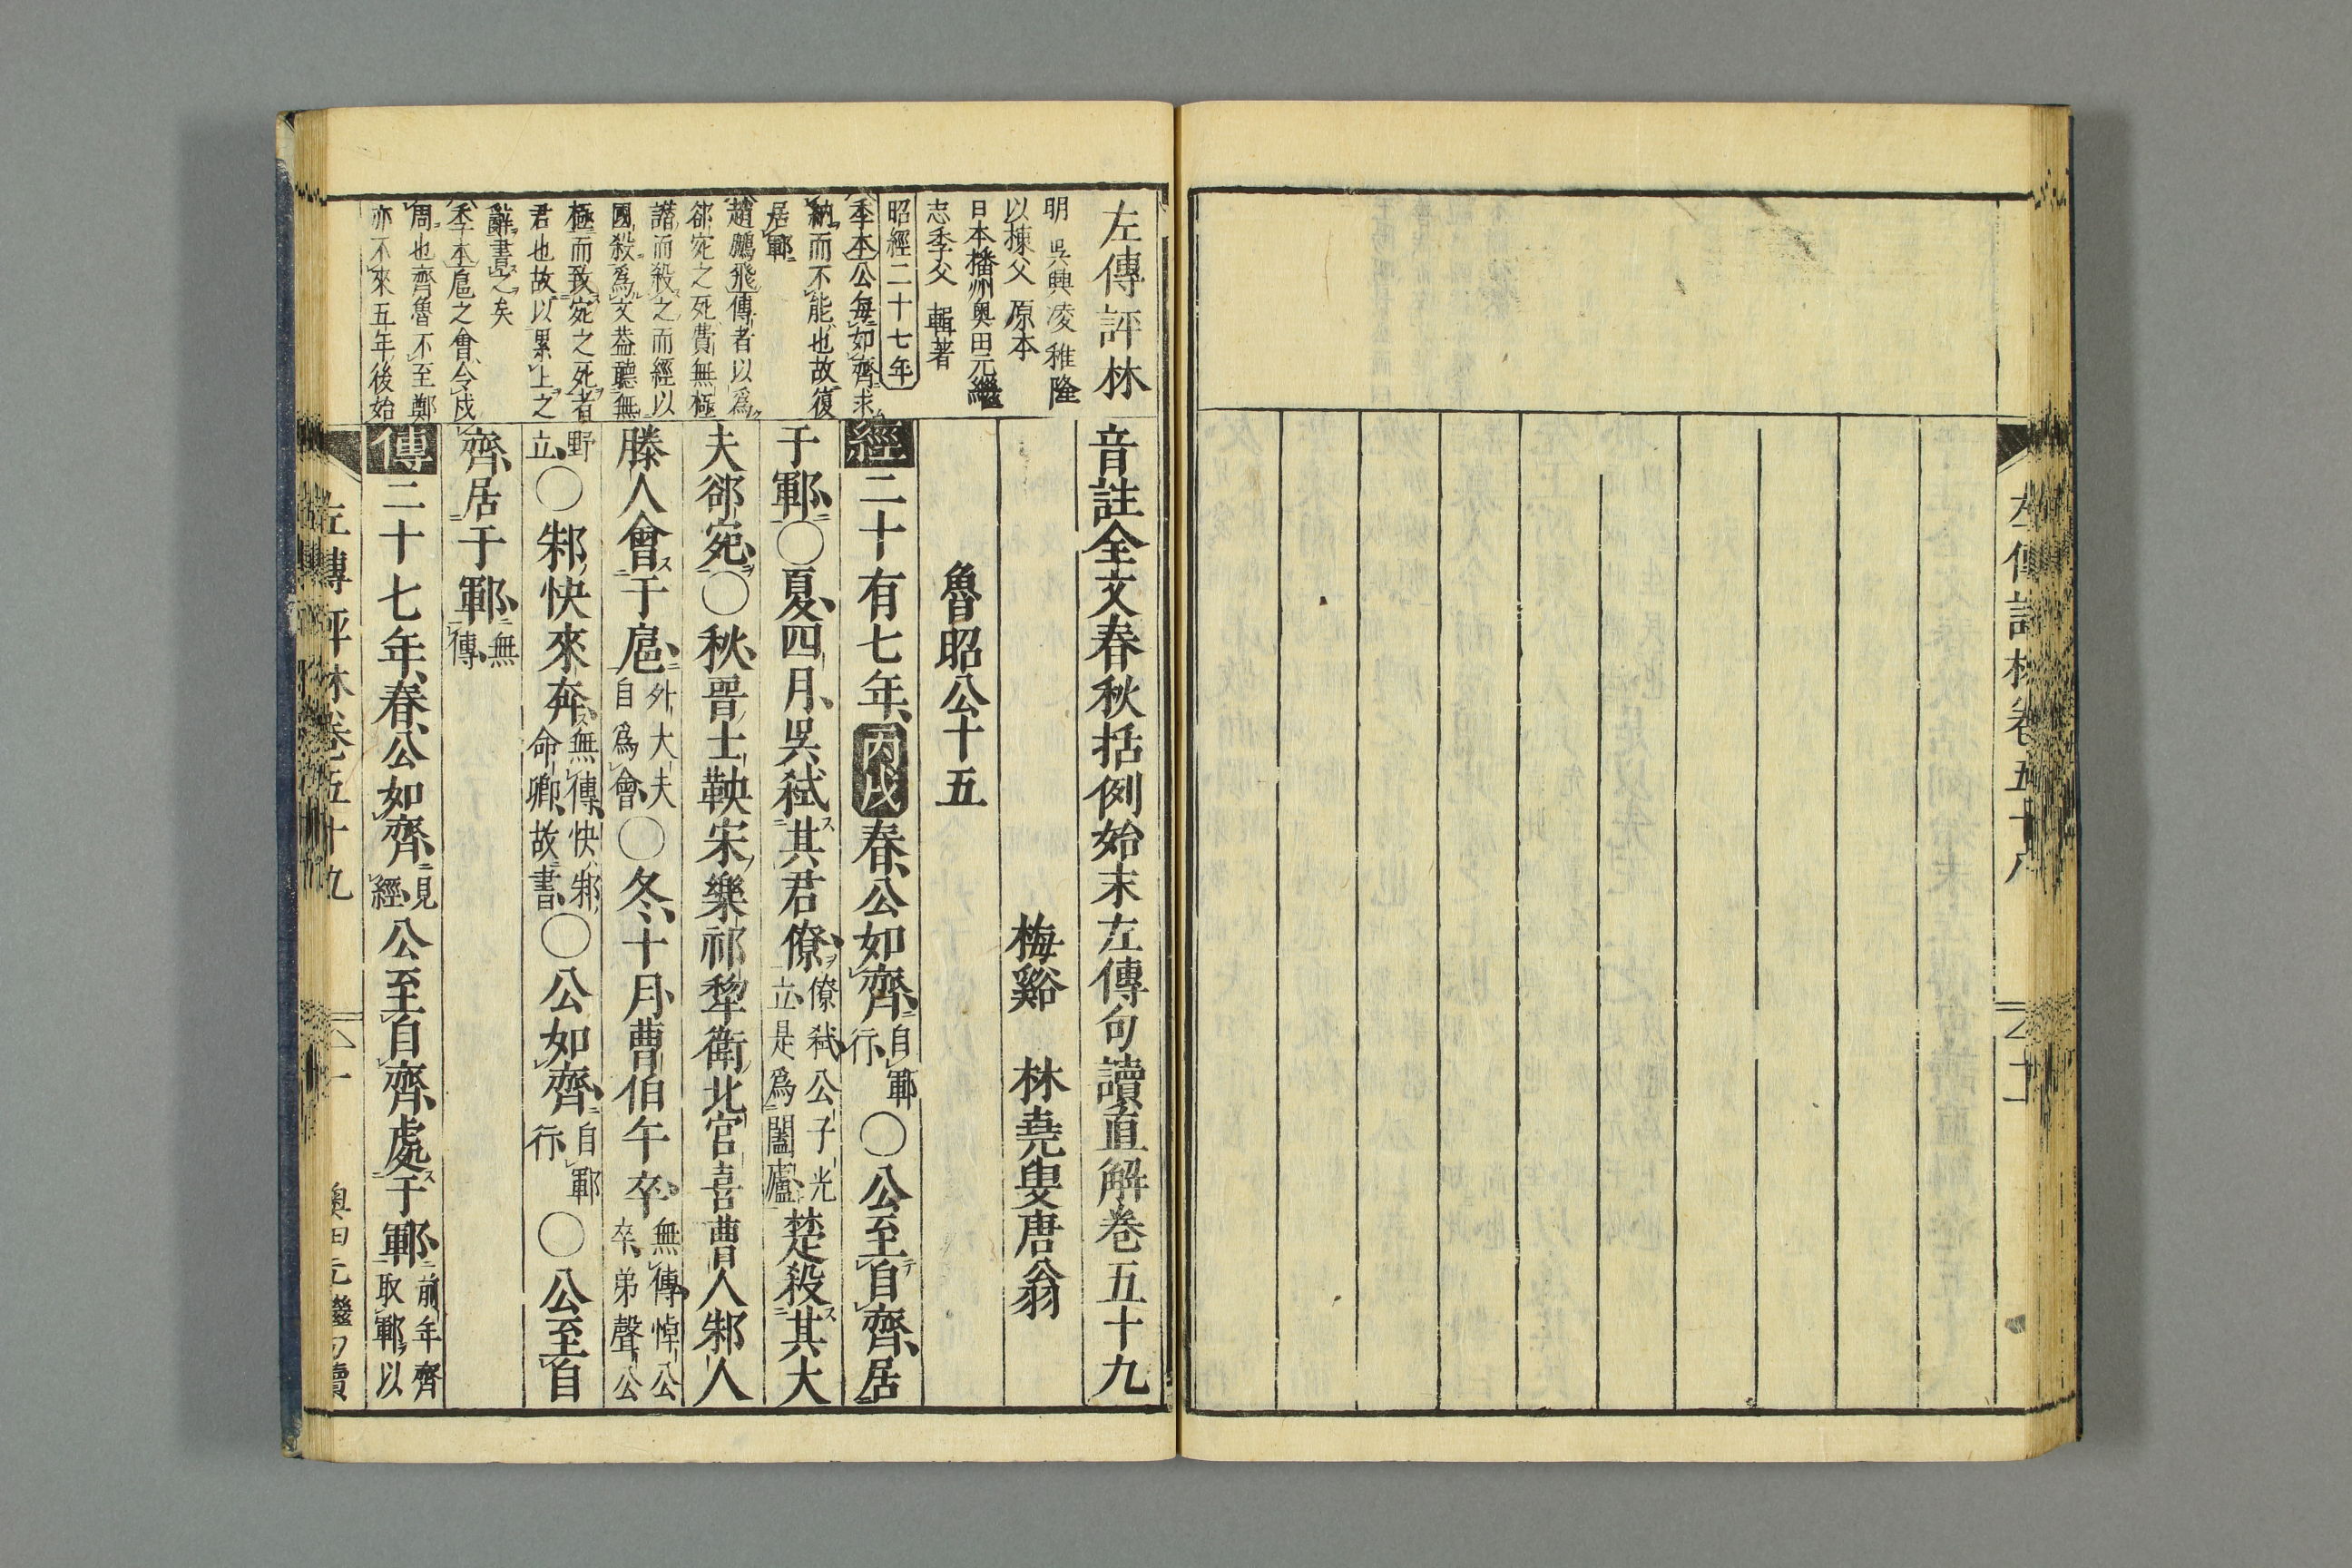 左傳評林卷五十八
左傳評林
明吳興凌稚隆
以棟父原本
日本播州奥田元繼
志季父輯著
昭經二十七年
季本公每如齊求
納而不能也故復
居鄆
趙鵬飛傳者以爲
郤宛之死費無極
譖而殺之而經以
國殺爲文葢聽無
極而致宛之死者
君也故以累上之
辭書之矣
季本扈之會令戍
周也齊魯不至鄭
亦不來五年後始
音註全文春秋括例始末左傳句讀直解卷五十九
梅谿 林堯叟唐翁
魯昭公十五
經二十有七年丙戌春公如齊自鄆行〇公至自齊居
于鄆〇夏四月吳弑其君僚僚弑公子光立是爲闔廬楚殺其大
夫郤宛〇秋晉士鞅宋樂祁犂衛北宮喜曹人邾人
滕人會于扈外大夫自爲會〇冬十月曹伯午卒無傳悼公卒弟聲公
野立〇邾快來奔無傳快邾命卿故書〇公如齊自鄆行〇公至自
齊居于鄆無傳
傳二十七年春公如齊見經公至自齊處于鄆前年齊取鄆以
左傳評林卷五十九
一
奥田元繼句讀